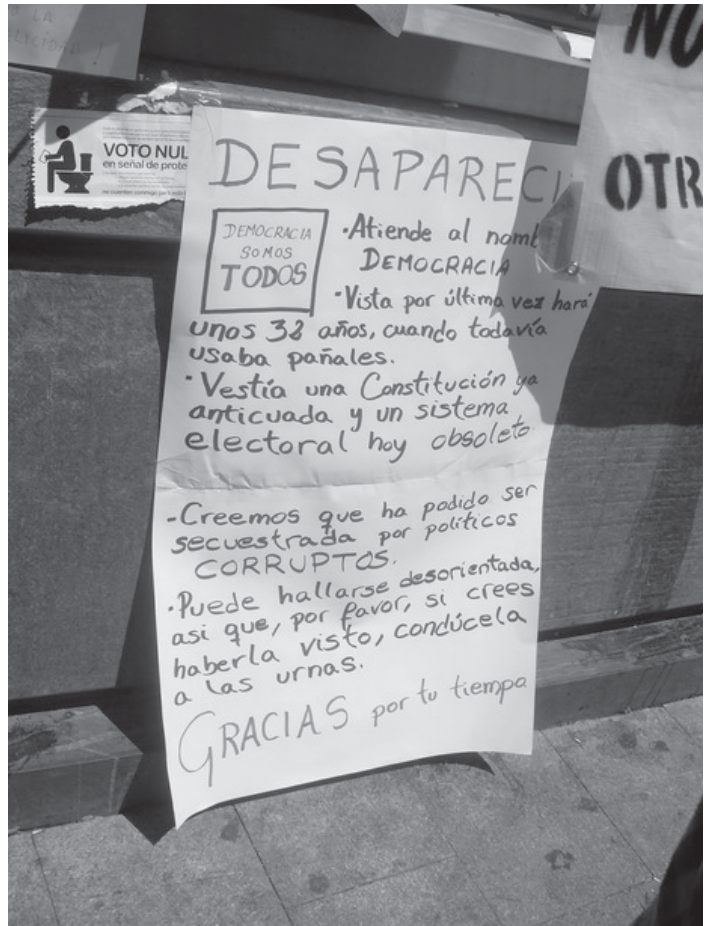 A LA
VOTO NUL
en señal de prote
no cuenten conmigo para
NO
OTR
DESAPARECI
DEMOCRACIA
SOMOS
TODOS
·Atiende al nomb
DEMOCRACIA
·Vista por última vez hará
unos 32 años, cuando todavía
usaba pañales.
·Vestía una Constitución ya
anticuada y un sistema
electoral hoy obsoleto.
-Creemos que ha podido ser
secuestrada por políticos
CORRUPTOS.
·Puede hallarse desorientada,
asi que, por favor, si crees
haberla visto, condúcela
a las urnas.
GRACIAS por tu tiempo